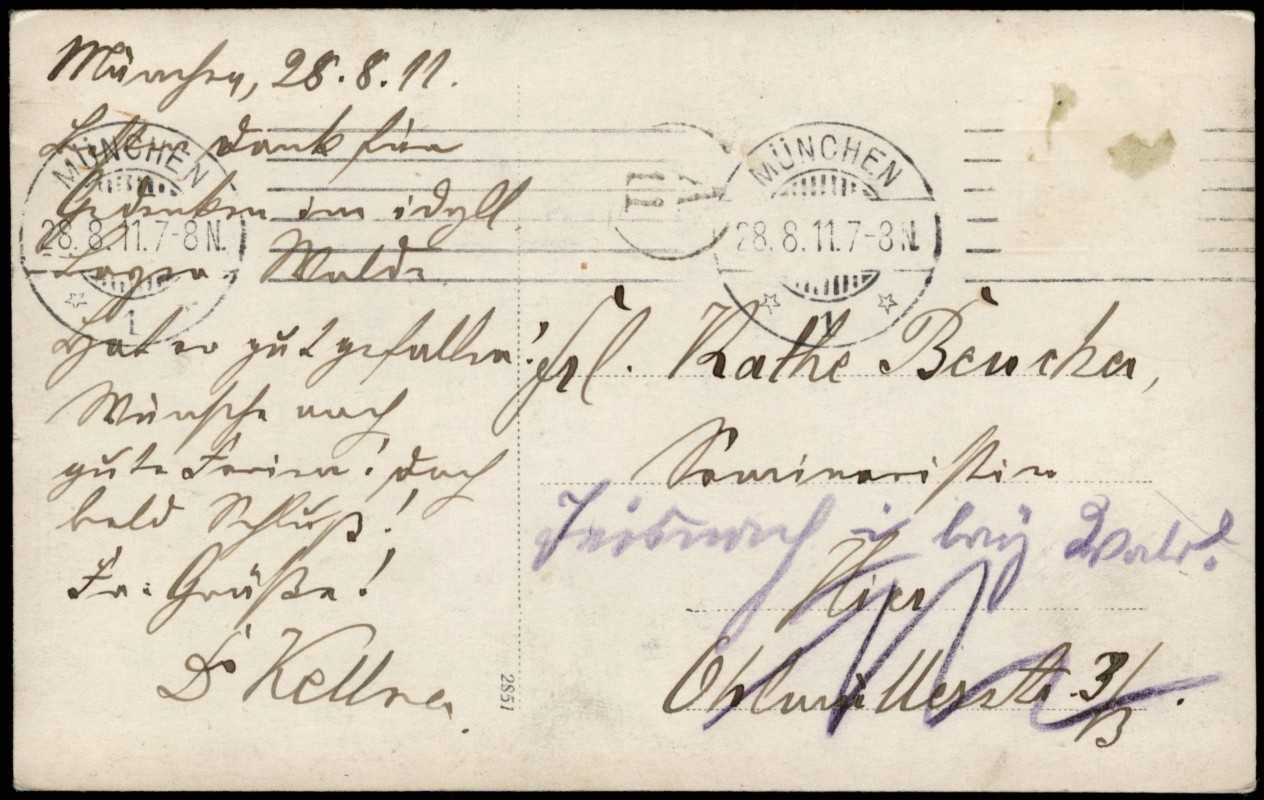 München, 28.8.11.
Besten Dank für
Gedenken im idyll
Walde
Hat er gut gefallen!
Wünsche noch
gute Ferien! doch
bald Schluß!
Fr: Grüße!
Dr Kellner.
MÜNCHEN
28.8.11.7-8N.
1
MÜNCHEN
28.8.11.7-8N.
1
Frl. Käthe Beucker,
Seminaristin
i bay Wald.
Hier
Ohlmüllerstr. 3/
2851